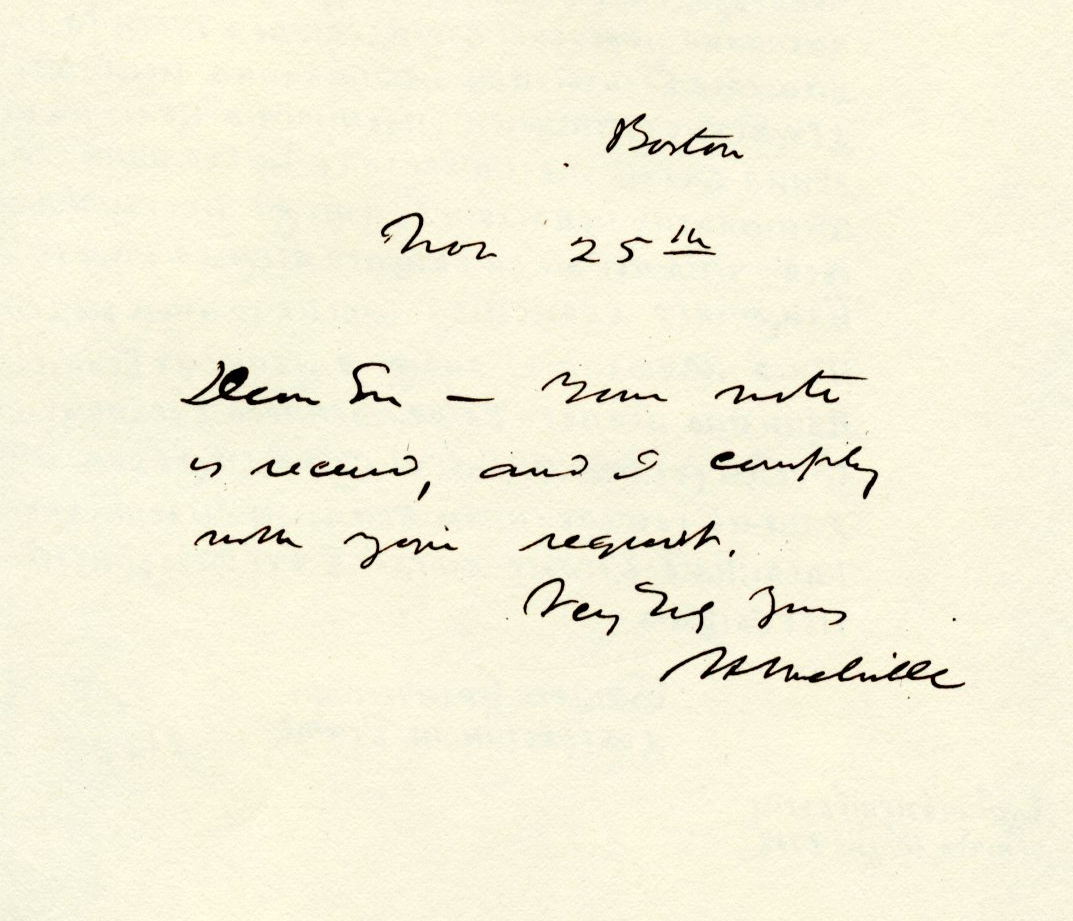 Boston
Nov 25th
Dear Sir — Your note
is received, and I comply
with your request.
Very Truly Yours
H Melville